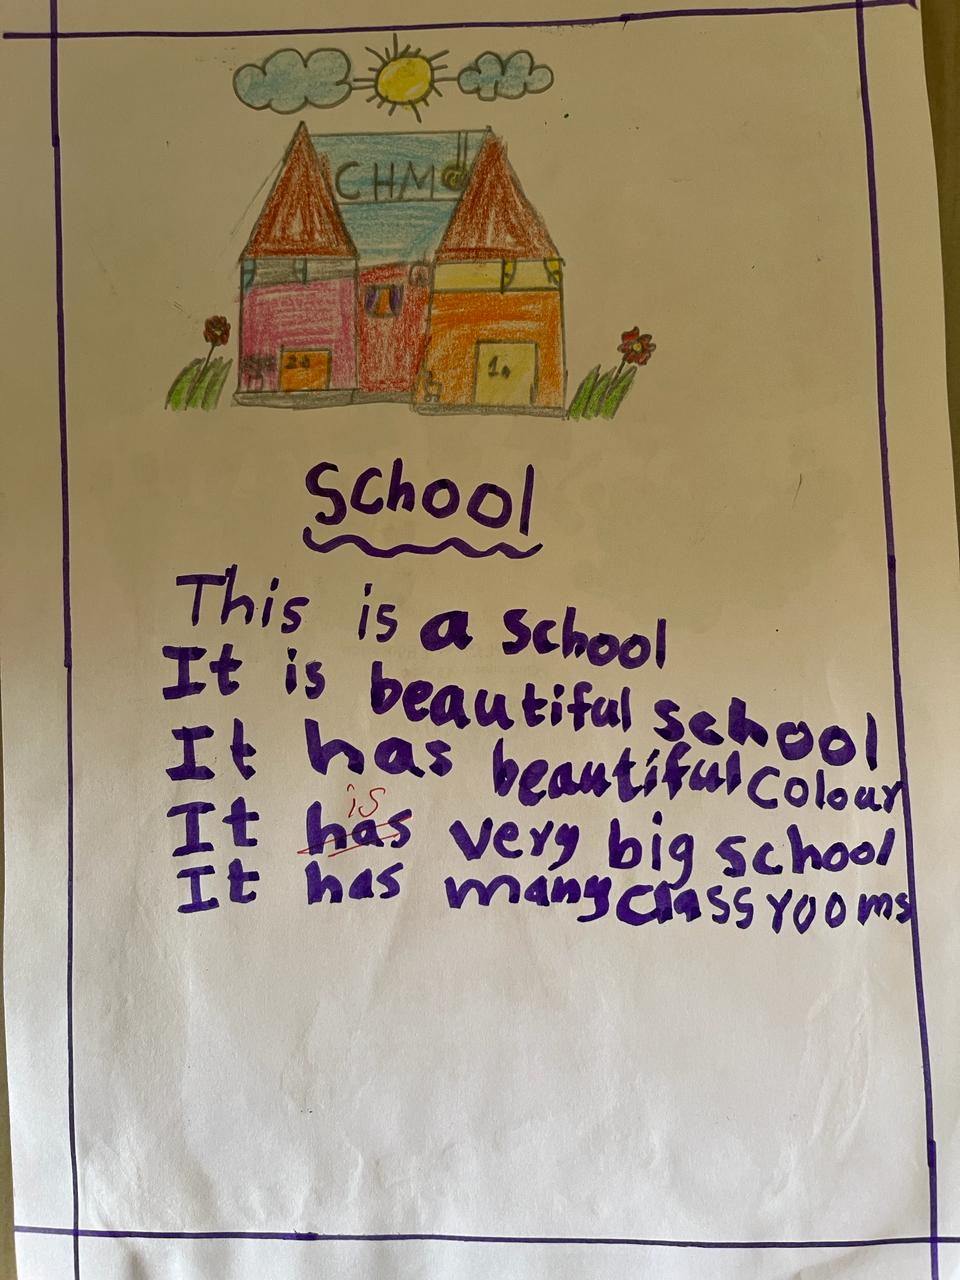 CHM
2a
1a
School
This is a school
It is beautiful school
It has beautiful colour
is
It has very big school
It has many classrooms